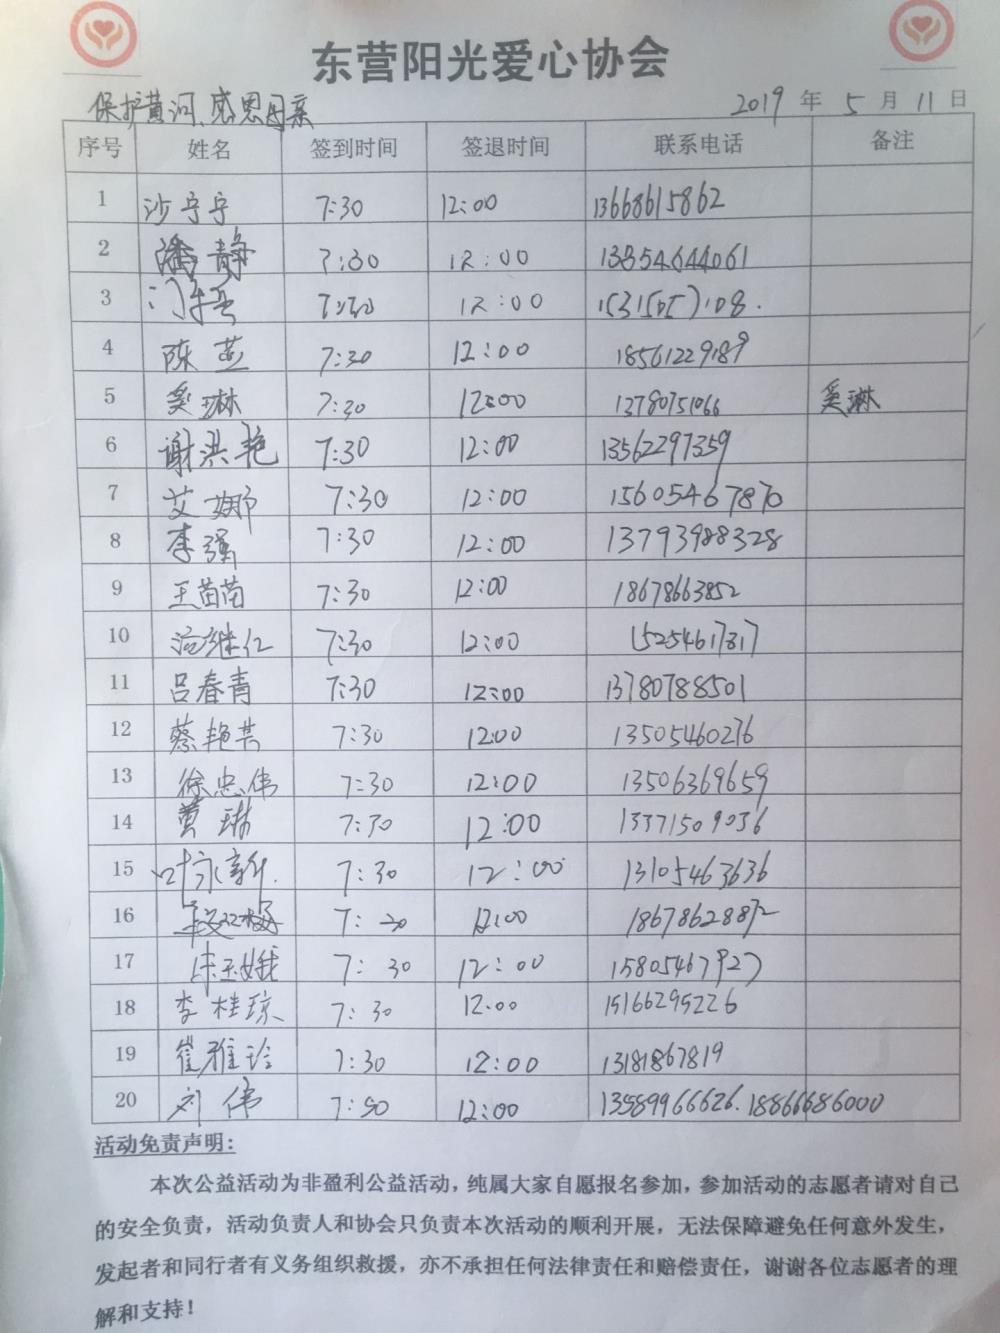 东营阳光爱心协会
保护黄河、感恩母亲 2019 年 5 月 11 日
序号 姓名 签到时间 签退时间 联系电话 备注
1 沙宁宁 7:30 12:00 13668615862
2 潘静 7:30 12:00 13854644061
3 7:30 12:00
4 陈燕 7:30 12:00 18561229189
5 奚琳 7:30 12:00 13780751066 奚琳
6 谢洪艳 7:30 12:00 13562297359
7 艾娜 7:30 12:00 15605467870
8 李强 7:30 12:00 13793988328
9 王苗苗 7:30 12:00 18678663852
10 范继红 7:30 12:00 15254617817
11 吕春青 7:30 12:00 13780788501
12 蔡艳芸 7:30 12:00 13505460276
13 徐忠伟 7:30 12:00 13506369659
14 黄琳 7:30 12:00 13371509036
15 叶永新 7:30 12:00 13105463636
16 段双梅 7:30 12:00 18678628872
17 陈玉娥 7:30 12:00 15805467927
18 李桂琼 7:30 12:00 15166295226
19 崔雅玲 7:30 12:00 13181867819
20 刘伟 7:50 12:00 13589966626.18866686000
活动免责声明:
本次公益活动为非盈利公益活动，纯属大家自愿报名参加，参加活动的志愿者请对自己
的安全负责，活动负责人和协会只负责本次活动的顺利开展，无法保障避免任何意外发生，
发起者和同行者有义务组织救援，亦不承担任何法律责任和赔偿责任，谢谢各位志愿者的理
解和支持！